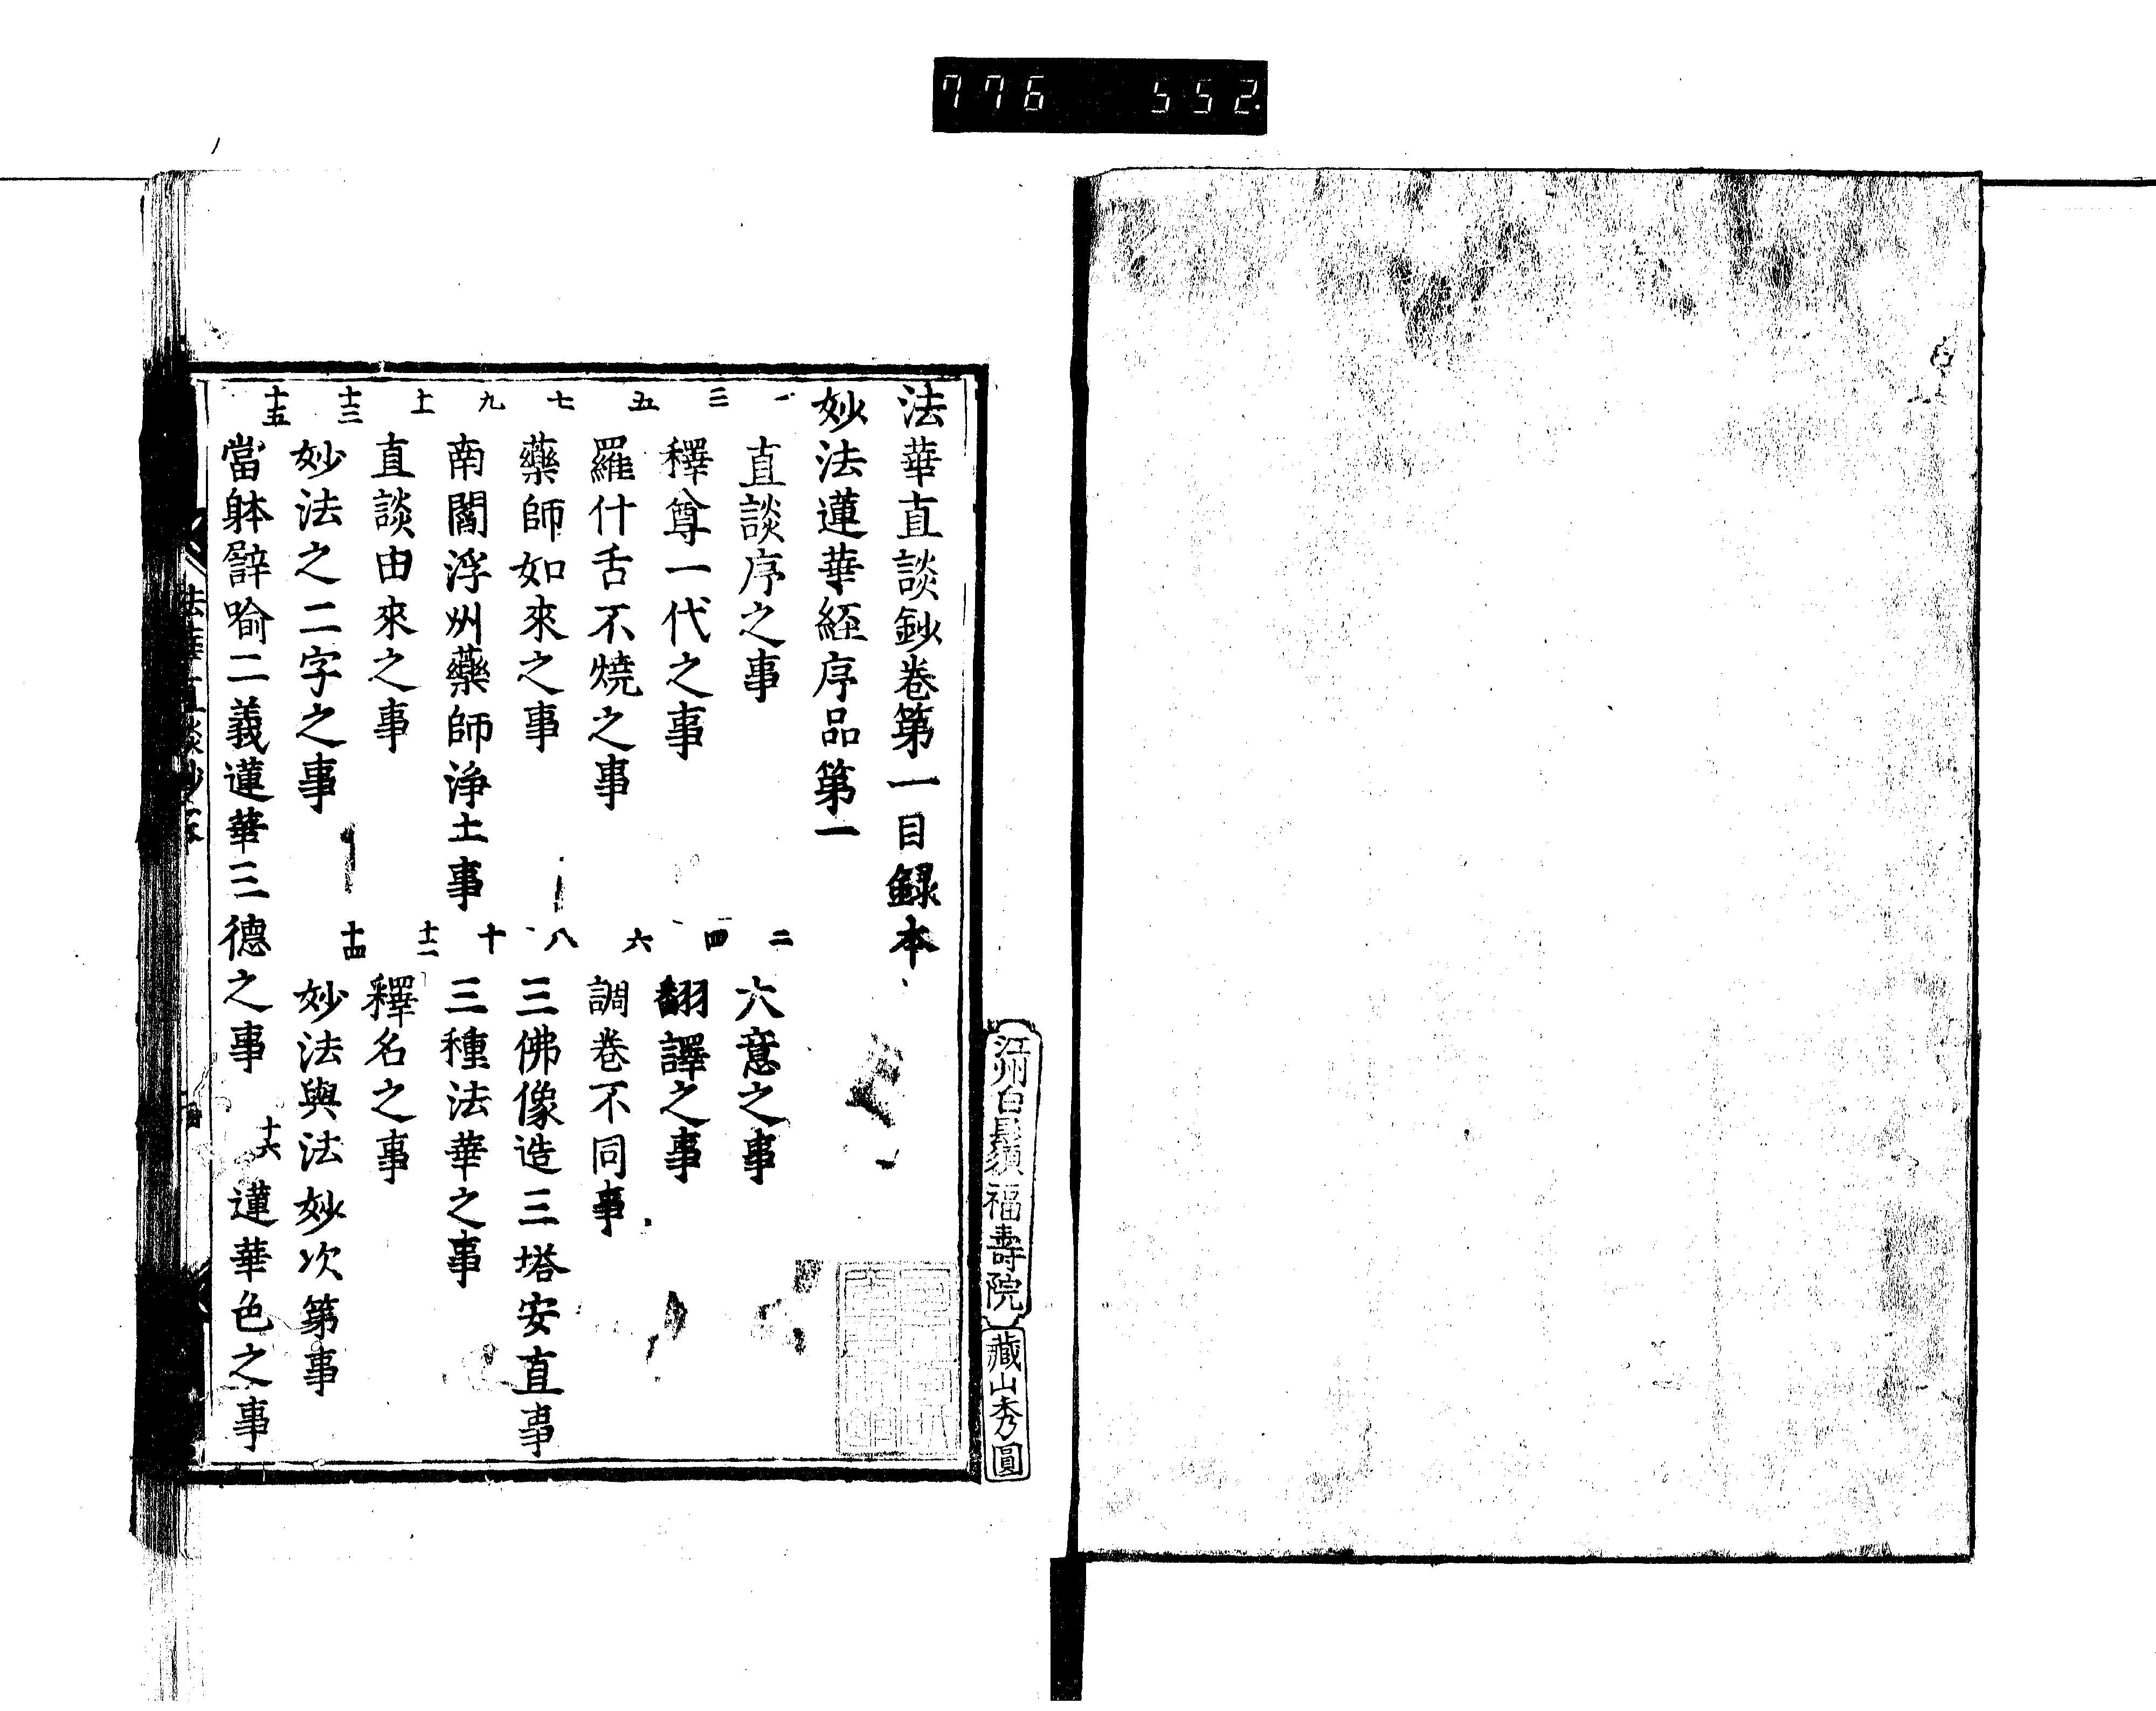 776 552
江州白髭須福壽院
藏山秀圓
法華直談鈔卷第一目録本
妙法蓮華經序品第一
一 直談序之事 二 六意之事
三 釋尊一代之事 四 翻譯之事
五 羅什舌不燒之事 六 調卷不同事
七 藥師如來之事 八 三佛像造三塔安直事
九 南閻浮州藥師淨土事 十 三種法華之事
十一 直談由來之事 十二 釋名之事
十三 妙法之二字之事 十四 妙法與法妙次第事
十五 當躰譬喻二義蓮華三德之事 十六 蓮華色之事